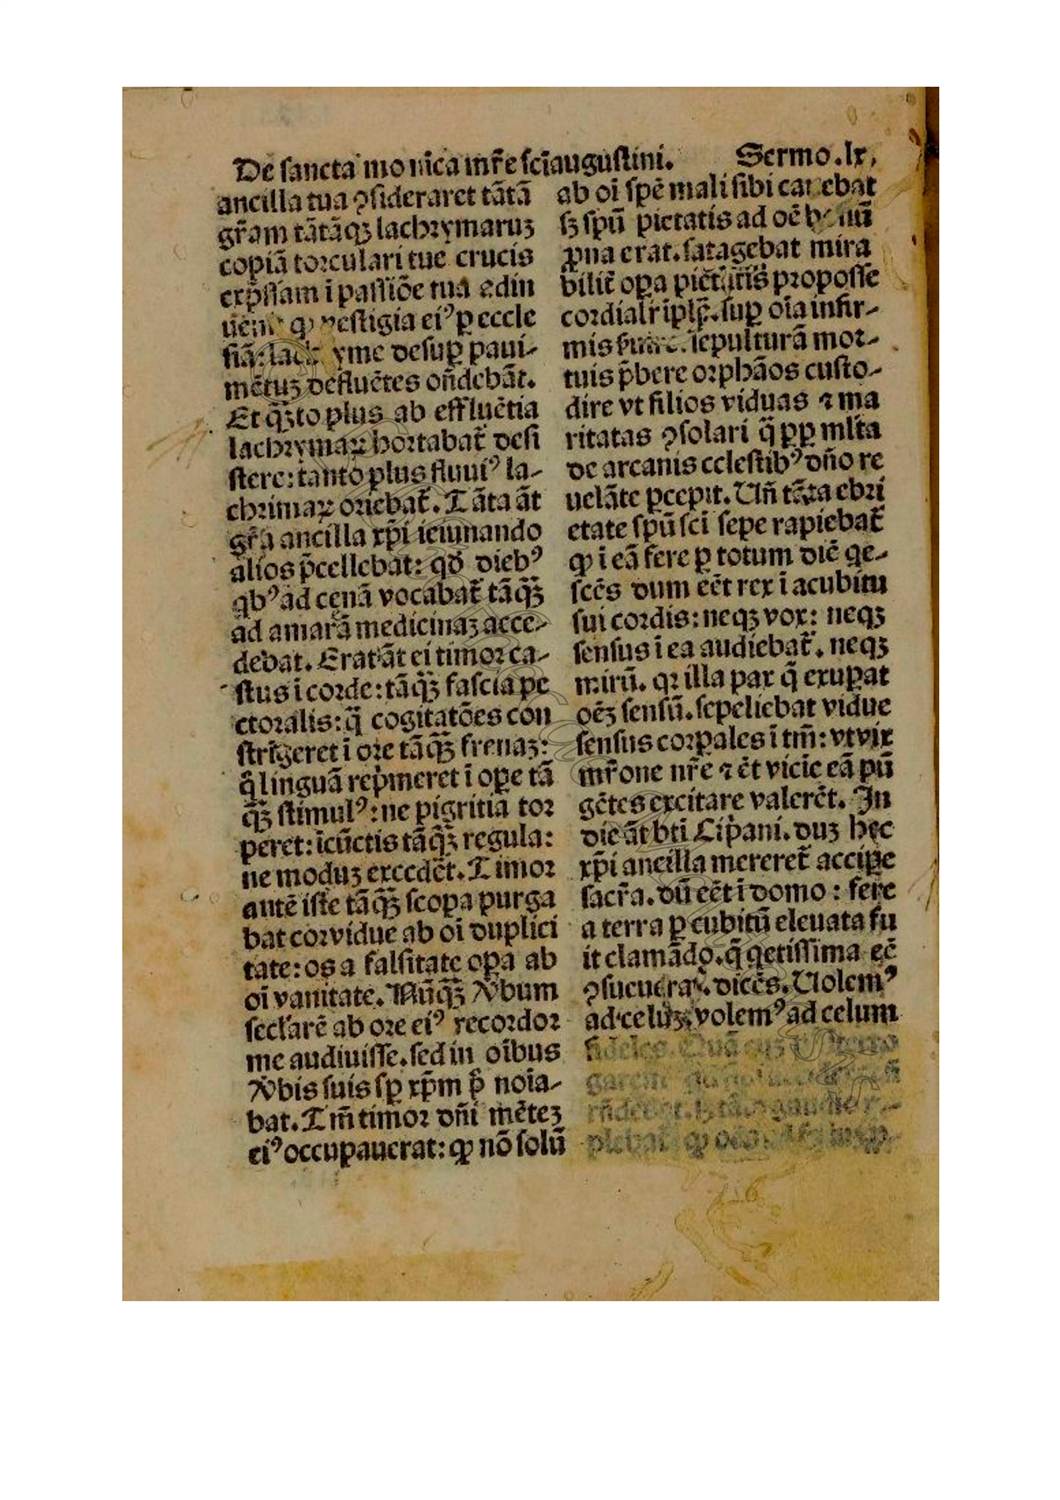 De sancta monica mr̄e sci augustini. Sermo .lx.
ancilla tua ꝯsideraret tātā
gr̄am tātāqꝫ lachrymaruꝫ
copiā torculari tue crucis
exp̄ssam i passiōe tua edin
vestigia eiꝰ ꝑ eccle
siā: yme desuꝑ paui-
mētuꝫ defluētes on̄debāt.
Et qᷓꝫto plus ab effluētia
lachrymaꝝ hortabat̄ desi
stere: tanto plus fluuiꝰ la-
chrimaꝝ oriebat̄. Tāta āt
gr̄a ancilla xp̄i ieiunando
alios p̄cellebat: qd̄ diebꝰ
qbꝰ ad cenā vocabat̄ tāqᷓꝫ
ad amarā medicinaꝫ acce-
debat. Erat āt ei timor ca-
stus i corde: tāqᷓꝫ fascia pe
ctoralis: q̄ cogitatōes con
strīgeret i ore tāqᷓꝫ frenaꝫ:
q̇ linguā rep̍meret i oꝑe tā
qᷓꝫ stimulꝰ: ne pigritia tor
peret: īcūctis tāqᷓꝫ regula:
ne moduꝫ excedēt. Timor
autē iste tāqᷓꝫ scopa purga
bat cor vidue ab oi duplici
tate: os a falsitate oꝑa ab
oi vanitate. Nūqᷓꝫ v̓bum
secl̓arē ab ore eiꝰ recordor
me audiuisse. sed in oībus
v̓bis suis sꝑ xp̄m p̄ noīa-
bat. Tm̄ timor dn̄i mēteꝫ
eiꝰ occupauerat: ꝙ nō solū
ab oī spē mali sibi cauebat
sꝫ spū pietatis ad oē
ꝓna erat. satagebat mira
bilit̄ oꝑa proposse
cordialr̄ iplꝑ̄. suꝑ oīa infir-
mis sepulturā mor-
tuis p̄bere orphāos custo-
dire vt filios viduas ⁊ ma
ritatas ꝯsolari q̄ ꝓꝑ ml̄ta
de arcanis celestibꝰ dn̄o re
uelāte ꝑcepit. Un̄ tāta ebri
etate spū sci sepe rapiebat̄
ꝙ i eā fere ꝑ totum diē qe-
scēs dum eēt rex i acubitu
sui cordis: neqꝫ vox: neqꝫ
sensus i ea audiebat̄. neqꝫ
mirū. qꝛ illa pax q̄ exuꝑat
oēꝫ sensū. sepeliebat vidue
sensus corꝑales i tm̄: vt vix
mr̄one nr̄e ⁊ ēt vicie eā pū
gētes excitare valerēt. In
die āt bti Cip̍ani. duꝫ hec
xp̄i ancilla mereret̄ acciꝑe
sacr̄a. dū eēt i domo: fere
a terra ꝑ cubitū eleuata fu
it clamādo. q̄ qetissima eē
ꝯsueuerat. dicēs. Uolemꝰ
ad celuꝫ, volemꝰ ad celum
fideles.